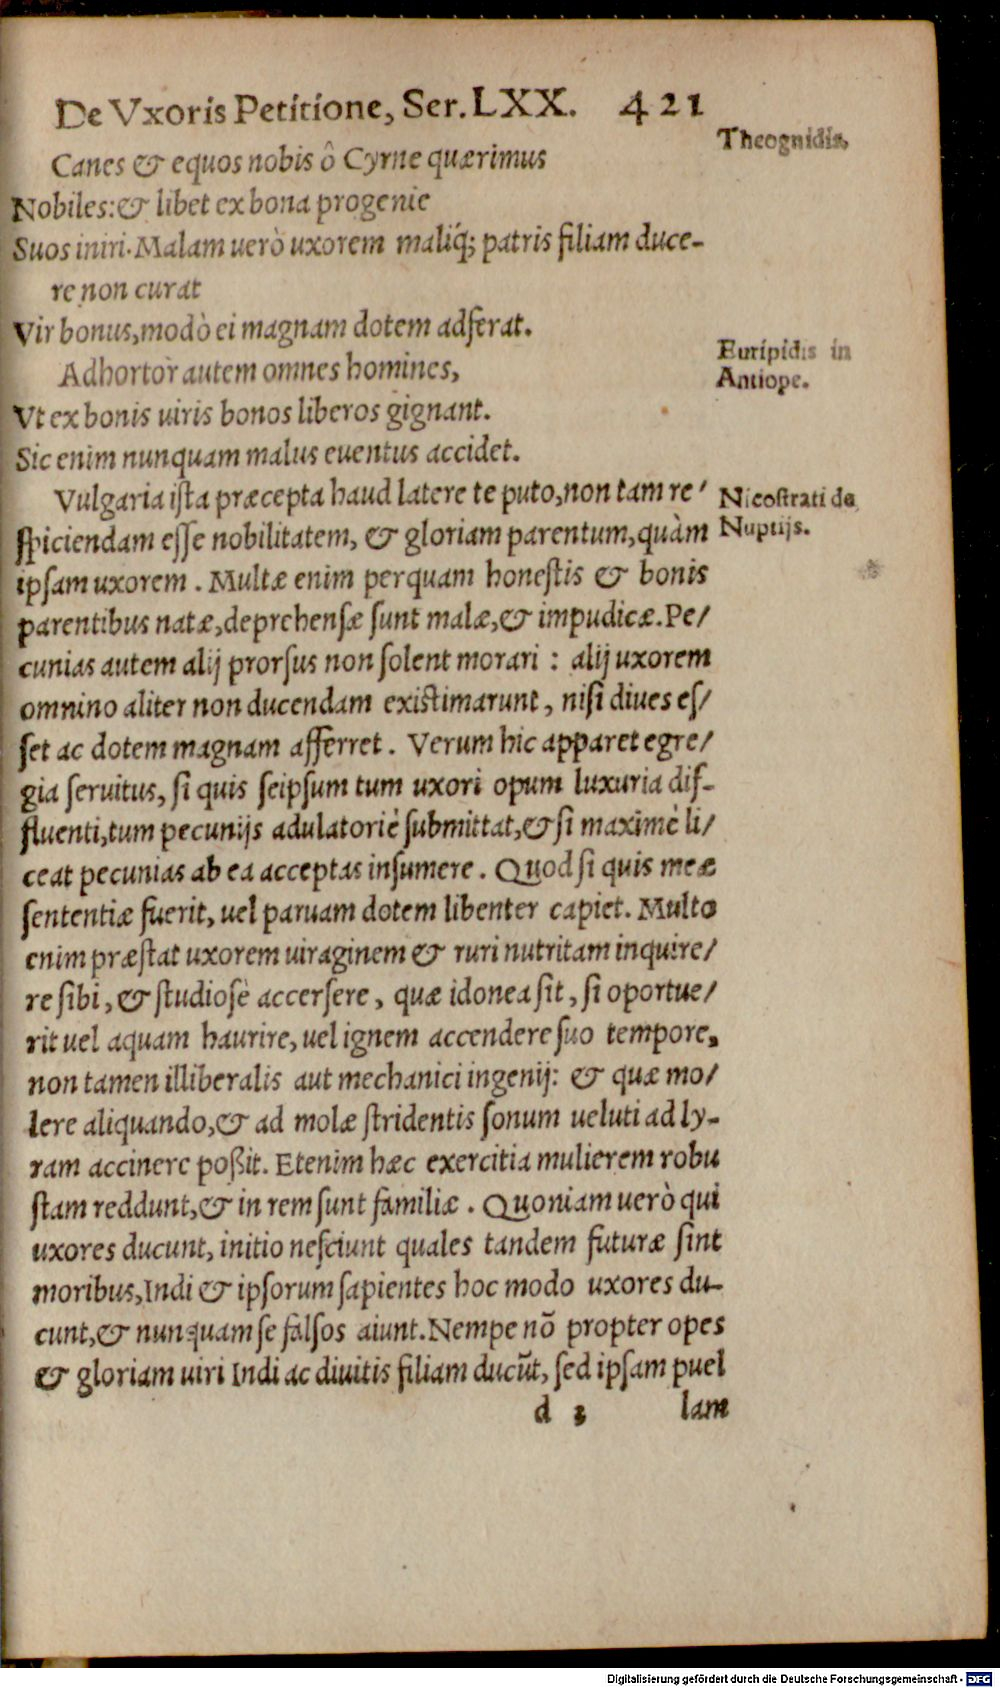 De Vxoris Petitione, Ser. LXX. 421
Theognidis,
Canes & equos nobis ô Cyrne quærimus
Nobiles: & libet ex bona progenie
Suos iniri. Malam uerò uxorem maliq́; patris filiam duce-
re non curat
Vir bonus, modò ei magnam dotem adferat.
Euripidis in
Antiope.
Adhortor autem omnes homines,
Vt ex bonis uiris bonos liberos gignant.
Sic enim nunquam malus euentus accidet.
Nicostrati de
Nuptijs.
Vulgaria ista præcepta haud latere te puto, non tam re/
spiciendam esse nobilitatem, & gloriam parentum, quàm
ipsam uxorem. Multæ enim perquam honestis & bonis
parentibus natæ, deprehensæ sunt malæ, & impudicæ. Pe/
cunias autem alij prorsus non solent morari: alij uxorem
omnino aliter non ducendam existimarunt, nisi diues es/
set ac dotem magnam afferret. Verum hic apparet egre/
gia seruitus, si quis seipsum tum uxori opum luxuria dif-
fluenti, tum pecunijs adulatoriè submittat, & si maximè li/
ceat pecunias ab ea acceptas insumere. Quod si quis meæ
sententiæ fuerit, uel paruam dotem libenter capiet. Multo
enim præstat uxorem uiraginem & ruri nutritam inquire/
re sibi, & studiosè accersere, quæ idonea sit, si oportue/
rit uel aquam haurire, uel ignem accendere suo tempore,
non tamen illiberalis aut mechanici ingenij: & quæ mo/
lere aliquando, & ad molæ stridentis sonum ueluti ad ly-
ram accinere poßit. Etenim hæc exercitia mulierem robu
stam reddunt, & in rem sunt familiæ. Quoniam uerò qui
uxores ducunt, initio nesciunt quales tandem futuræ sint
moribus, Indi & ipsorum sapientes hoc modo uxores du-
cunt, & nunquam se falsos aiunt. Nempe nõ propter opes
& gloriam uiri Indi ac diuitis filiam ducũt, sed ipsam puel
d 3 lam
Digitalisierung gefördert durch die Deutsche Forschungsgemeinschaft - DFG